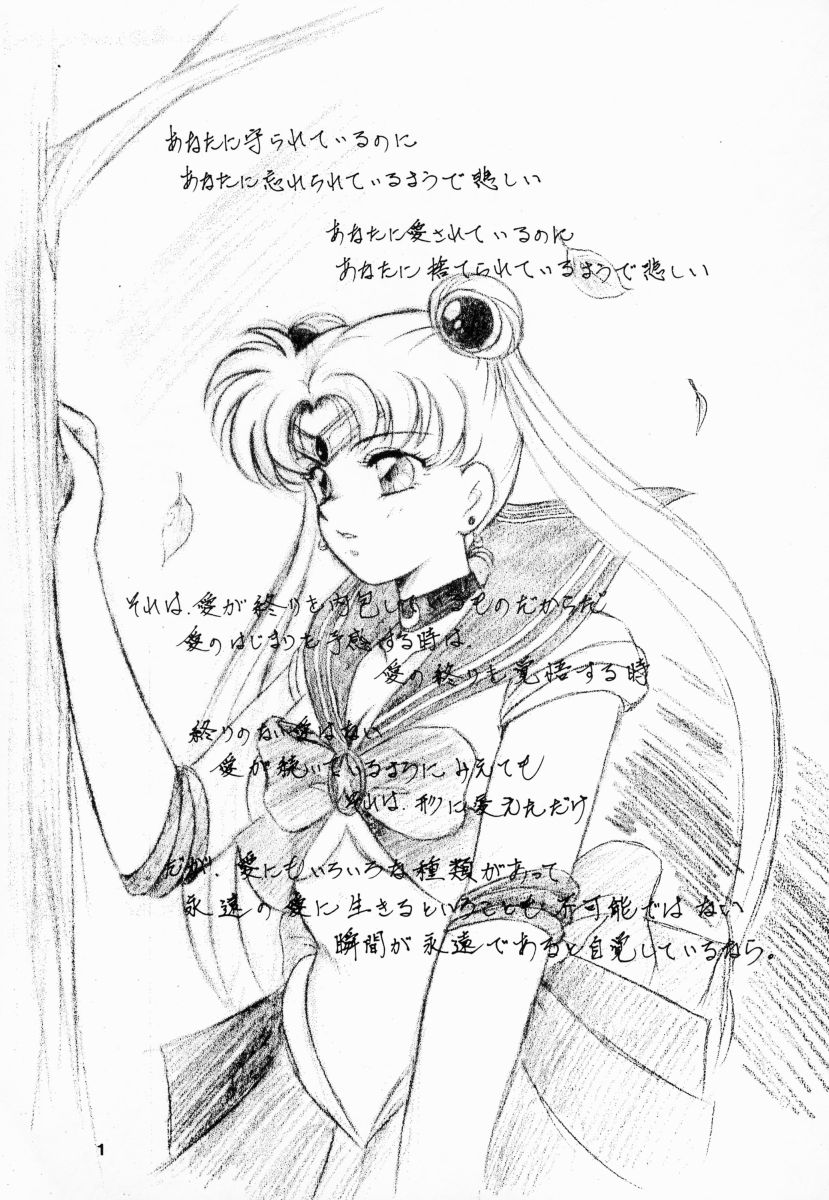 あなたに守られているのに
あなたに忘れられているようで悲しい
あなたに愛されているのに
あなたに捨てられているようで悲しい
それは、愛が終りを内包しているものだからだ
愛のはじまりを予感する時は、
愛の終りを覚悟する時
終りのない愛はない
愛が続いているようにみえても
それは、形に愛えただけ
だが、愛にもいろいろな種類があって
永遠の愛に生きるということも、不可能ではない
瞬間が永遠であると自覚しているなら。
1